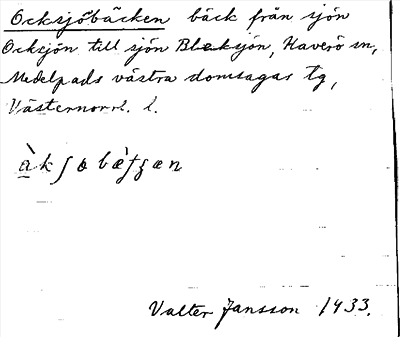 Ocksjöbäcken bäck från sjön
Ocksjön till sjön Bleksjön, Haverö sn,
Medelpads västra domsagas tg,
Västernorrl. l.
Valter Jansson 1933.